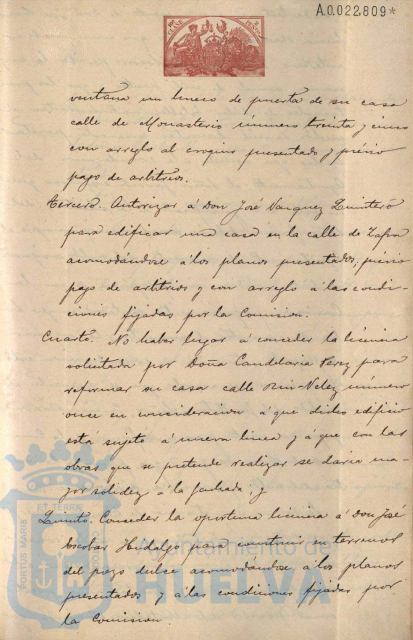 A.0.022.809*
ventana un hueco de puerta de su casa
calle de Monasterio número treinta y cinco
con arreglo al croquis presentado y previo
pago de arbitrios.
Tercero. Autorizar á Don José Vazquez Quintero
para edificar una casa en la calle de Zafra
acomodándose á los planos presentados, previo
pago de arbitrios y con arreglo á las condi-
ciones fijadas por la Comision.
Cuarto. No haber lugar á conceder la licencia
solicitada por Doña Candelaria Perez para
reformar su casa calle Rui-Velez número
once en consideracion á que dicho edificio
está sujeto á nueva linea y á que con las
obras que se pretende realizar se daria ma-
yor solidez á la fachada: y
Quinto. Conceder la oportuna licencia á Don José
Escobar Hidalgo para construir en terrenos
del pozo dulce acomodándose á los planos
presentados y á las condiciones fijadas por
la Comision.
PORTUS MARIS
ET TERRÆ
Ayuntamiento de
HUELVA